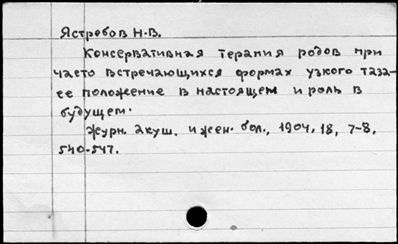 Ястребов Н.В.
Консервативная терапия родов при
часто встречающихся формах узкого таза-
ее положение в настоящем и роль в
будущем.
Журн. акуш. и жен. бол., 1904, 18, 7-8,
540-547.